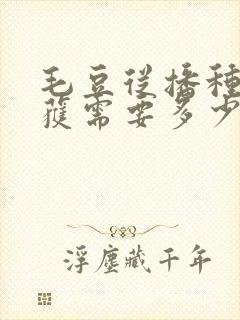 毛豆從播種
穫需要多少
浮塵藏千年